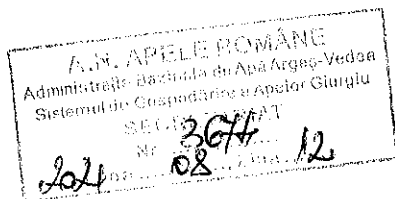 A.N. APELE ROMÂNE
Administrația Bazinală de Apă Argeș-Vedea
Sistemul de Gospodărire a Apelor Giurgiu
SECRETARIAT
Nr. 3674
2021 08 12